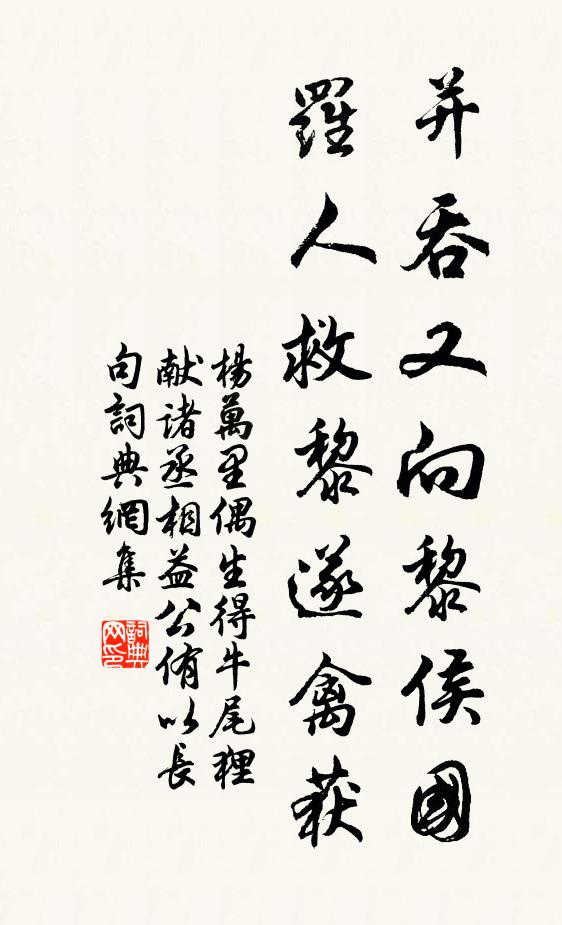 并吞又向黎侯國
羅人救黎遂禽获
楊萬里偶生得牛尾狸
献诸丞相益公侑以長
句詞典網集
詞典网印